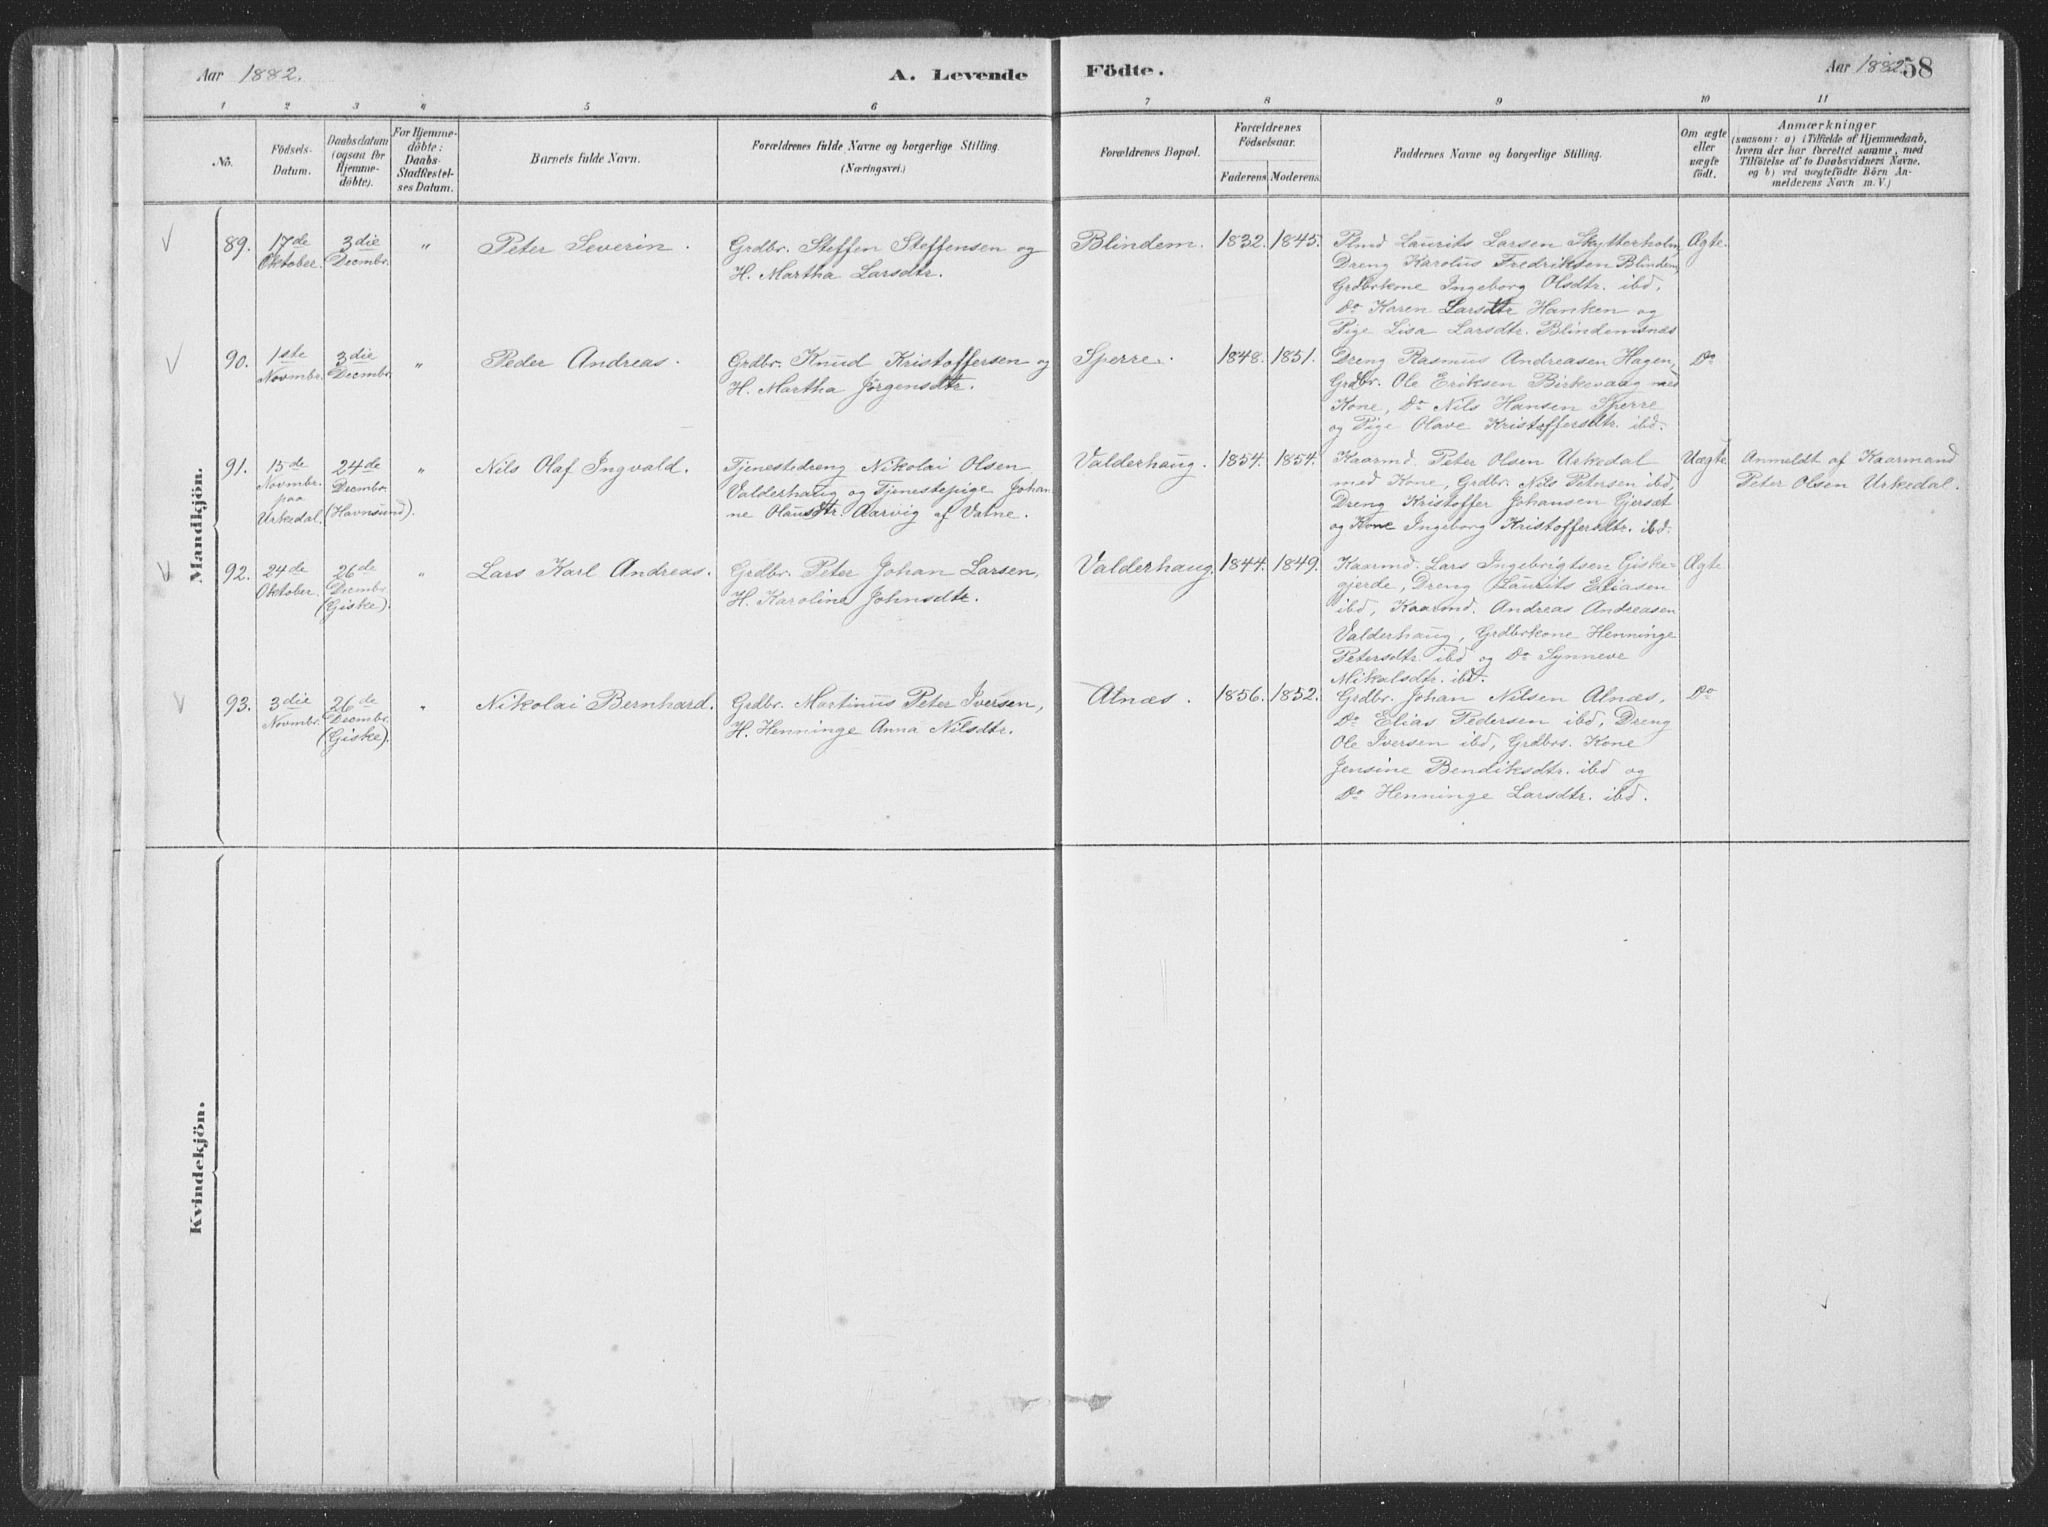 Aar 1882.
A. Levende
Födte.
Aar 1882.
58
1 2 3 " 5 6 7 8 9 10 11
No.
Födsels-
Datum.
Daabsdatum
(ogsaa for
Hjemme-
döbte).
For Hjemme-
döbte:
Daabs-
Stadfestel-
ses Datum.
Barnets fulde Navn.
Forældrenes fulde Navne og borgerlige Stilling.
(Næringsvei.)
Forældrenes Bopæl.
Forældrenes
Födselsaar.
Faderens. Moderens.
Faddernes Navne og borgerlige Stilling.
Om ægte
eller
uægte
födt.
Anmærkninger
(saasom: a) i Tilfælde af Hjemmedaab,
hvem der har forrettet samme, med
Tilföielse af to Daabsvidners Navne,
og b) ved uægtefödte Börn An-
melderens Navn m. V.)
Mandkjön.
89.
17de
Oktober.
3die
Decmbr.
"
Peter Severin.
Grdbr. Steffen Steffensen og
H. Martha Larsdtr.
Blindem.
1832. 1845.
Plmd Laurits Larsen Skytterholm,
Dreng Karolus Fredriksen Blindem,
Grdbrkone Ingeborg Olsdtr. ibd,
Do Karen Larsdtr Hanken og
Pige Lisa Larsdtr. Blindemsnæs
Ægte.
90.
1ste
Novmbr.
3die
Decmbr.
"
Peder Andreas.
Grdbr. Knud Kristoffersen og
H. Martha Jörgensdtr.
Sperre.
1848. 1851.
Dreng Rasmus Andreasen Hagen,
Grdbr. Ole Eriksen Birkevaag med
Kone, Do Nils Hansen Sperre
og Pige Olave Kristoffersdtr. ibd.
Do
91.
15de
Novmbr.
paa
Urkedal.
24de
Decmbr.
(Havnsund).
"
Nils Olaf Ingvald.
Tjenestedreng Nikolai Olsen
Valderhaug og Tjenestepige Johan
ne Olausdtr. Aarvig af Vatne.
Valderhaug.
1854. 1854.
Kaarmd. Peter Olsen Urkedal
med Kone, Grdbr. Nils Petersen ibd,
Dreng Kristoffer Johansen Gjersæt
og Kone Ingeborg Kristoffersdtr. ibd.
Uægte
Anmeldt af Kaarmand
Peter Olsen Urkedal.
92.
24de
Oktober.
26de
Decmbr.
(Giske).
"
Lars Karl Andreas.
Grdbr. Peter Johan Larsen,
H. Karoline Johnsdtr.
Valderhaug.
1844. 1849.
Kaarmd. Lars Ingebrigtsen Giske-
gjerde, Dreng Laurits Eliasen
ibd, Kaarmd. Andreas Andreasen
Valderhaug, Grdbrkone Henninge
Petersdtr. ibd og Do Synneve
Mikalsdtr. ibd.
Ægte
93.
3die
Novmbr.
26de
Decmbr.
(Giske).
"
Nikolai Bernhard.
Grdbr. Martinus Peter Iversen,
H. Henninge Anna Nilsdtr.
Alnæs.
1856. 1852.
Grdbr. Johan Nilsen Alnæs,
Do Elias Pedersen ibd, Dreng
Ole Iversen ibd, Grdbrs. Kone
Jensine Bendiksdtr. ibd og
Do Henninge Larsdtr. ibd.
Do
Kvindekjön.